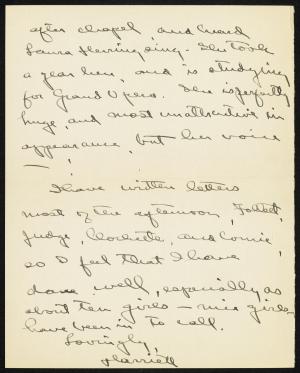 after chapel, and heard
Laura Herring sing. She took
a year here, and is studying
for Grand Opera. She is perfectly
huge, and most unattractive in
appearance, but her voice
— !
I have written letters
most of the afternoon,
Judge, and Connie,
so I feel that I have
done well, especially as
about ten girls — nice girls
have been in to call.
Lovingly,
Harriett